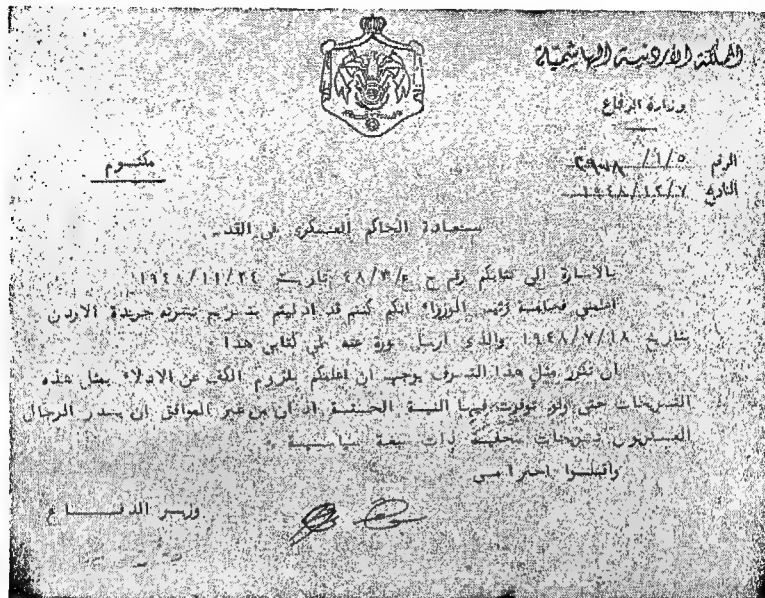 المملكة الأردنية الهاشمية
وزارة الدفاع
الرقم ٥/١/
التاريخ ١٩٤٨/١٢/٧
مكتوم
سعادة الحاكم العسكري في القدس
بالاشارة الى كتابكم رقم ح ع/٤٨/٣ تاريخ ١٩٤٨/١١/٢٤
اعلمني فخامة رئيس الوزراء انكم كنتم قد ادليتم بتصريح نشرته جريدة الاردن
بتاريخ ١٩٤٨/٧/١٨ والذي ارسل صورة عنه طي كتابي هذا
ان تكرر مثل هذا التصرف يوجب ان اعلمكم بلزوم الكف عن الادلاء بمثل هذه
التصريحات حتى ولو توفرت فيها النية الحسنة اذ ان من غير الموافق ان يصدر الرجال
العسكريون تصريحات محلية ذات صفة سياسية .
واقبلوا احترامي
وزير الدفاع